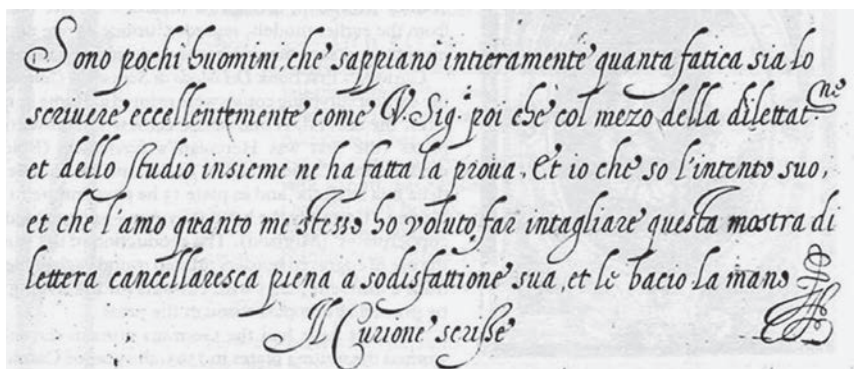 Sono pochi huomini, che sappiano intieramente quanta fatica sia lo
scrivere eccellentemente come V. Sig.ᵃ poi che col mezo della dilettat.ⁿᵉ
et dello studio insieme ne ha fatta la proua, Et io che so l'intento suo,
et che l'amo quanto me stesso ho voluto far intagliare questa mostra di
lettera cancellaresca piena a sodisfattione sua, et le bacio la mano
Il Curione scrisse